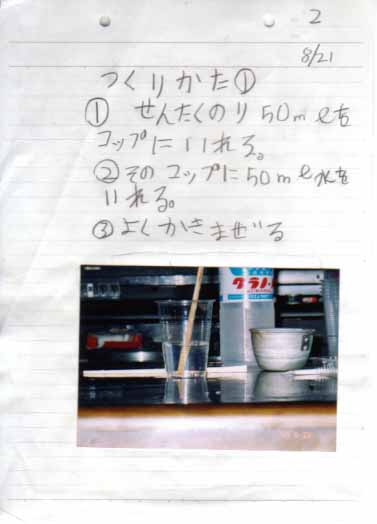 2
8/21
つくりかた①
① せんたくのり 50mlを
コップにいれる。
②そのコップに50ml水を
いれる。
③よくかきまぜる